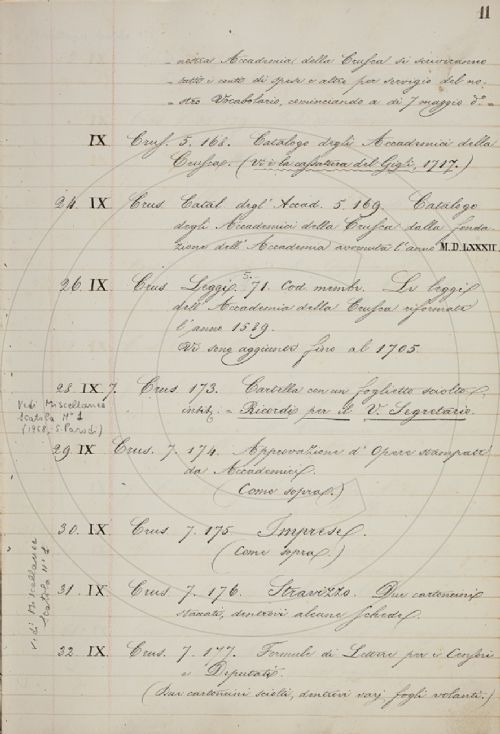 11
nostra Accademia della Crusca si scriveranno
tutte e conto di spese e altro per servizio del no=
stro Vocabolario, cominciando a dì 7 maggio d°=
IX Crus. 5. 168. Catalogo degli Accademici della
Crusca. (Vi è la cassatura del Gigli, 1717.)
24. IX Crus Catal. degl' Accad. 5. 169. Catalogo
degli Accademici della Crusca dalla fonda=
zione dell' Accademia avvenuta l'anno M.D.LXXXII.
26. IX Crus Leggi. 5. 71. Cod. membr. Le leggi
dell' Accademia della Crusca riformate
l'anno 1589.
Vi sono aggiunte fino al 1705.
28. IX 7. Crus. 173. Cartella con un foglietto sciolto
intit. = Ricordi per il V. Segretario.
Vedi Miscellanea
Scatola N° 1
(1968, S. Parodi)
29 IX Crus. 7. 174. Approvazione d' Opere stampate
da Accademici.
(Come sopra.)
30. IX Crus 7. 175 Imprese.
(Come sopra)
vedi Miscellanea
Scatola N° 1
31. IX Crus. 7. 176. Stravizzo. Due cartoncini
staccati, dentrovi alcune schede.
32 IX. Crus. 7. 177. Formule di Lettere per i Censori
e Deputati.
(Due cartoncini sciolti, dentrovi varj fogli volanti.)